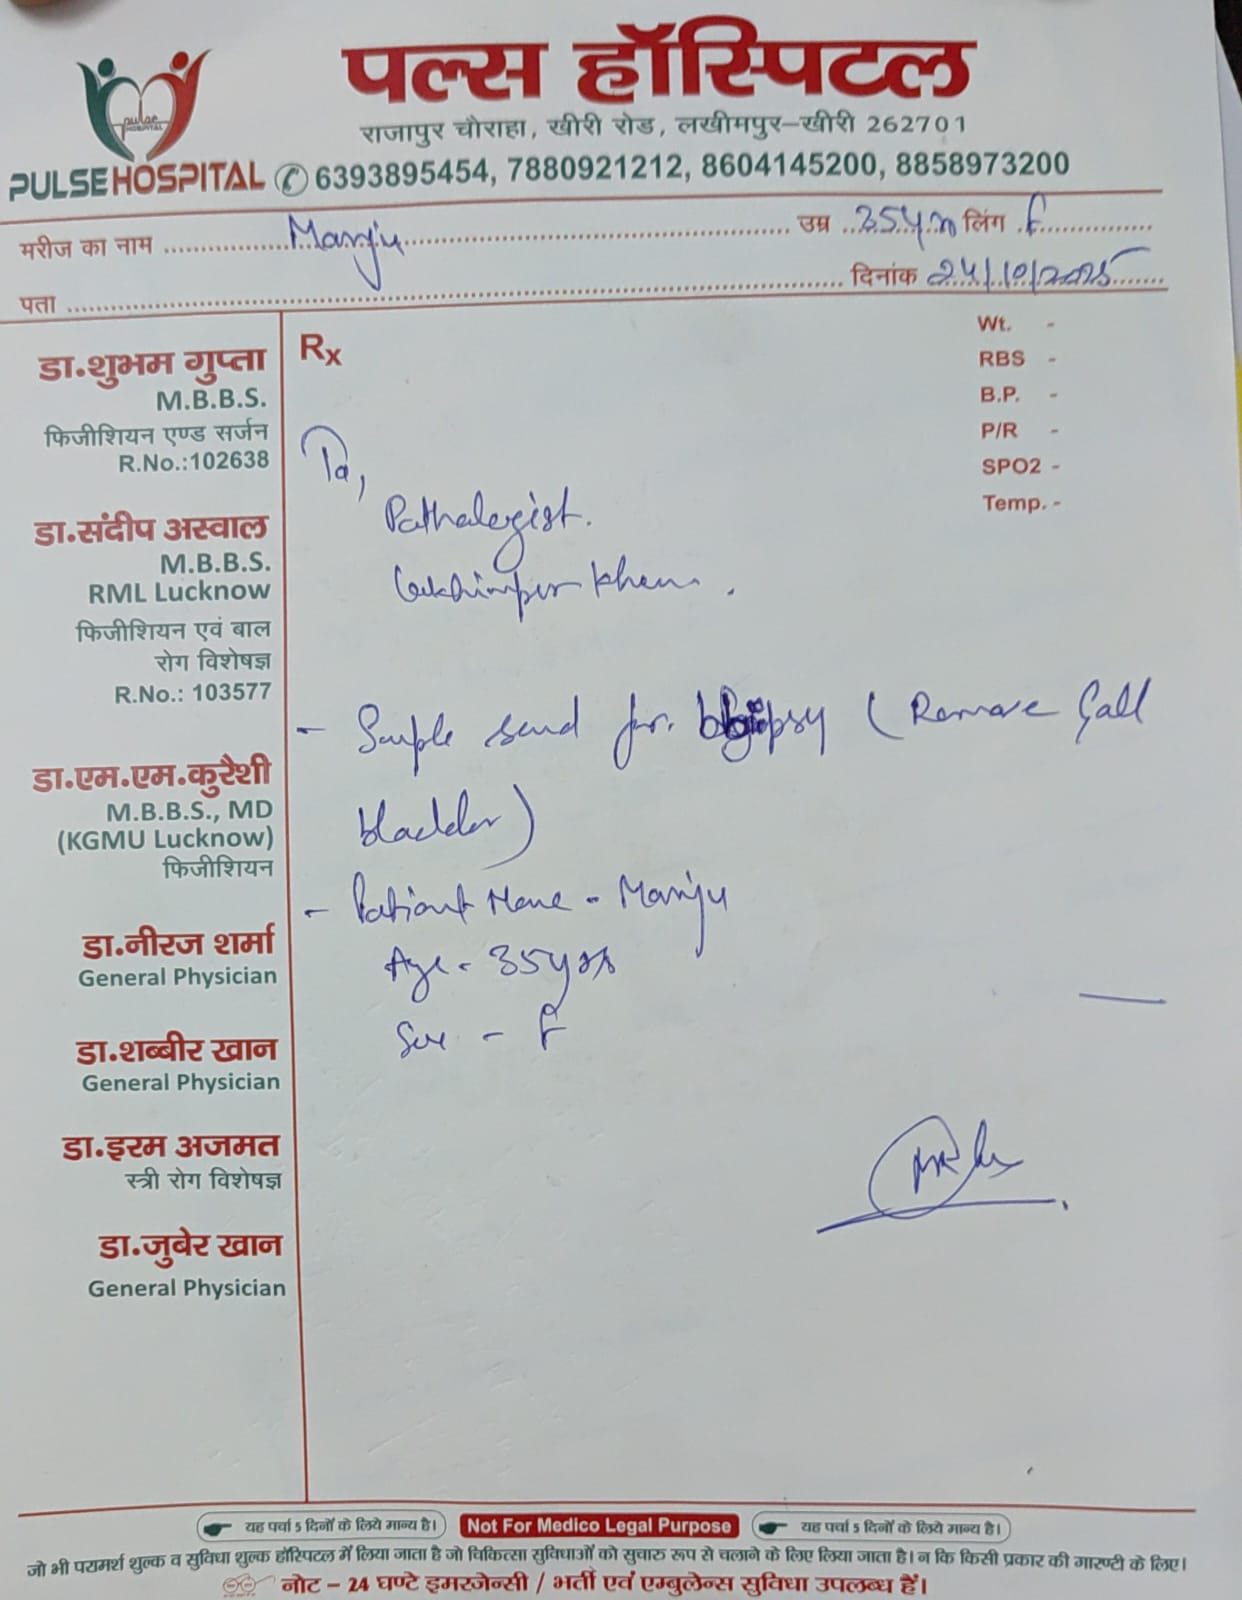 पल्स हॉस्पिटल
राजापुर चौराहा, खीरी रोड, लखीमपुर-खीरी 262701
pulse HOSPITAL
PULSE HOSPITAL 6393895454, 7880921212, 8604145200, 8858973200
मरीज का नाम Manju उम्र 35yrs लिंग F
पता दिनांक 24/10/2025
Rx
Wt. -
RBS -
B.P. -
P/R -
SPO2 -
Temp. -
डा.शुभम गुप्ता
M.B.B.S.
फिजीशियन एण्ड सर्जन
R.No.:102638
डा.संदीप अस्वाल
M.B.B.S.
RML Lucknow
फिजीशियन एवं बाल
रोग विशेषज्ञ
R.No.: 103577
डा.एम.एम.कुरैशी
M.B.B.S., MD
(KGMU Lucknow)
फिजीशियन
डा.नीरज शर्मा
General Physician
डा.शब्बीर खान
General Physician
डा.इरम अजमत
स्त्री रोग विशेषज्ञ
डा.जुबेर खान
General Physician
To,
Pathalogist.
Lakhimpur Kheri.
- Sample send for biopsy (Remove Gall
bladder)
- Patient Name - Manju
Age - 35yrs
Sex - F
यह पर्चा 5 दिनों के लिये मान्य है। Not For Medico Legal Purpose यह पर्चा 5 दिनों के लिये मान्य है।
जो भी परामर्श शुल्क व सुविधा शुल्क हॉस्पिटल में लिया जाता है जो चिकित्सा सुविधाओं को सुचारु रूप से चलाने के लिए लिया जाता है। न कि किसी प्रकार की गारण्टी के लिए।
नोट - 24 घण्टे इमरजेन्सी / भर्ती एवं एम्बुलेन्स सुविधा उपलब्ध हैं।